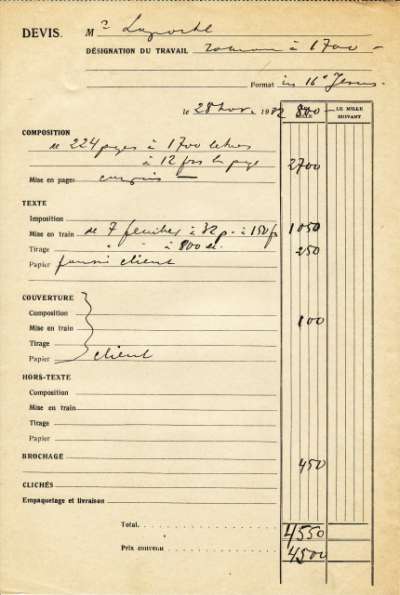 DEVIS. Mr Laporte
DÉSIGNATION DU TRAVAIL roman à 1700
Format in 16° Jesus.
le 28 Nov. 19 800 LE MILLE SUIVANT
COMPOSITION
de 224 pages à 1700 lettres
à 12 frs la page 2700
Mise en pages compris
TEXTE
Imposition
Mise en train de 7 feuilles à 32 p. à 150 frs 1050
Tirage " " à 800 ex. 250
Papier fourni client
COUVERTURE
Composition
Mise en train 100
Tirage
Papier client
HORS-TEXTE
Composition
Mise en train
Tirage
Papier
BROCHAGE 450
CLICHÉS
Empaquetage et livraison
Total. 4550
Prix convenu 4500